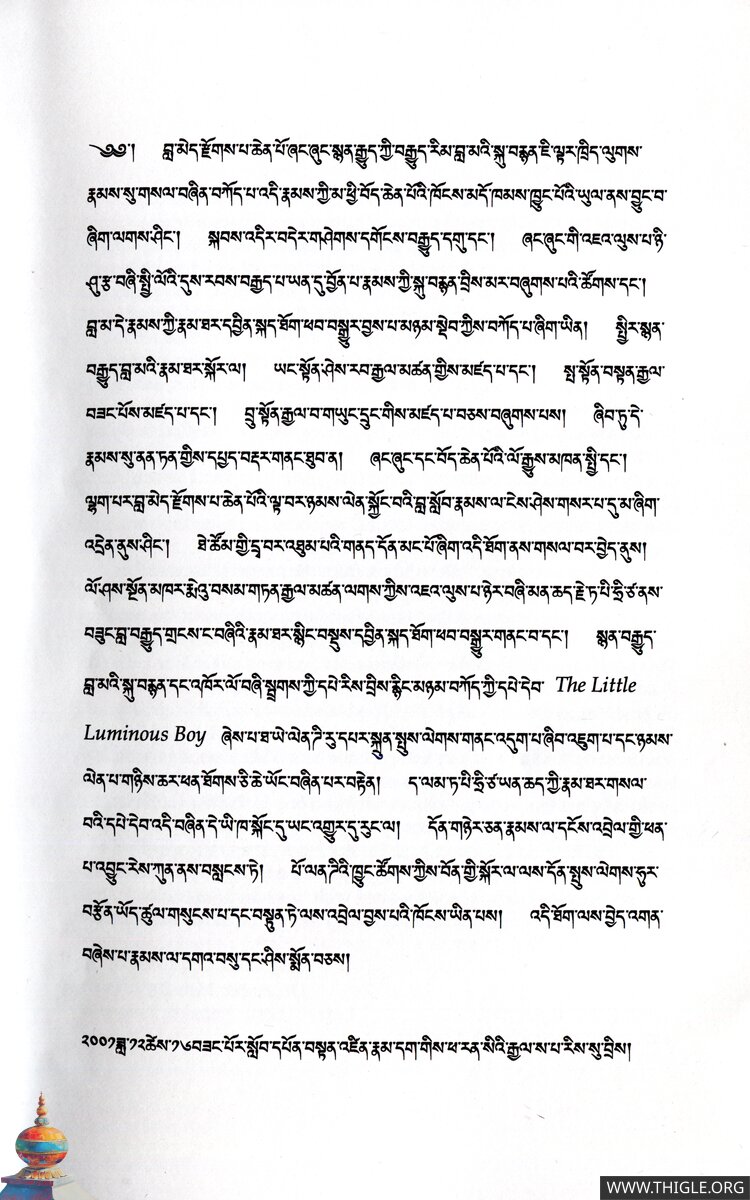 ༄༅། །བླ་མེད་རྫོགས་པ་ཆེན་པོ་ཞང་ཞུང་སྙན་རྒྱུད་ཀྱི་བརྒྱུད་རིམ་བླ་མའི་སྐུ་བརྙན་ཇི་ལྟར་ཁྲིད་ལུགས་
རྣམས་སུ་གསལ་བཞིན་བཀོད་པ་འདི་རྣམས་ཀྱི་མ་ཕྱི་བོད་ཆེན་པོའི་ཁོངས་མདོ་ཁམས་ཁྱུང་པོའི་ཡུལ་ནས་བྱུང་བ་
ཞིག་ལགས་ཤིང་། སྐབས་འདིར་བདེར་གཤེགས་དགོངས་བརྒྱུད་དགུ་དང་། ཞང་ཞུང་གི་འཇའ་ལུས་པ་ཉི་
ཤུ་རྩ་བཞི་སྤྱི་ལོའི་དུས་རབས་བརྒྱད་པ་ཡན་དུ་བྱོན་པ་རྣམས་ཀྱི་སྐུ་བརྙན་བྲིས་མར་བཞུགས་པའི་ཚོགས་དང་།
བླ་མ་དེ་རྣམས་ཀྱི་རྣམ་ཐར་དབྱིན་སྐད་ཐོག་ཕབ་བསྒྱུར་བྱས་པ་མཉམ་སྡེབ་ཀྱིས་བཀོད་པ་ཞིག་ཡིན། སྤྱིར་སྙན་
བརྒྱུད་བླ་མའི་རྣམ་ཐར་སྐོར་ལ། ཡང་སྟོན་ཤེས་རབ་རྒྱལ་མཚན་གྱིས་མཛད་པ་དང་། སྤ་སྟོན་བསྟན་རྒྱལ་
བཟང་པོས་མཛད་པ་དང་། བྲུ་སྟོན་རྒྱལ་བ་གཡུང་དྲུང་གིས་མཛད་པ་བཅས་བཞུགས་པས། ཞིབ་ཏུ་དེ་
རྣམས་སུ་ནན་ཏན་གྱིས་དཔྱད་བརྡར་གནང་ཐུབ་ན། ཞང་ཞུང་དང་བོད་ཆེན་པོའི་ལོ་རྒྱུས་མཁན་སྤྱི་དང་།
ལྷག་པར་བླ་མེད་རྫོགས་པ་ཆེན་པོའི་ལྟ་བར་ཉམས་ལེན་སྐྱོང་བའི་བླ་སློབ་རྣམས་ལ་ངེས་ཤེས་གསར་པ་དུ་མ་ཞིག་
འདྲེན་ནུས་ཤིང་། ཐེ་ཚོམ་གྱི་དྲྭ་བར་འཐུམ་པའི་གནད་དོན་མང་པོ་ཞིག་འདི་ཐོག་ནས་གསལ་བར་བྱེད་ནུས།
ལོ་ཤས་སྔོན་མཁར་རྨེའུ་བསམ་གཏན་རྒྱལ་མཚན་ལགས་ཀྱིས་འཇའ་ལུས་པ་ཉེར་བཞི་མན་ཆད་རྗེ་ཏ་པི་ཧྲི་ཙ་ནས་
བཟུང་བླ་བརྒྱུད་གྲངས་ང་བཞིའི་རྣམ་ཐར་སྙིང་བསྡུས་དབྱིན་སྐད་ཐོག་ཕབ་བསྒྱུར་གནང་བ་དང་། སྙན་བརྒྱུད་
བླ་མའི་སྐུ་བརྙན་དང་འཁོར་ལོ་བཞི་སྦྲགས་ཀྱི་དཔེ་རིས་བྲིས་རྙིང་མཉམ་བཀོད་ཀྱི་དཔེ་དེབ་ The Little
Luminous Boy ཞེས་པ་ཐ་ཡེ་ལེན་ཌི་རུ་དཔར་སྐྲུན་སྤུས་ལེགས་གནང་འདུག་པ་ཞིབ་འཇུག་པ་དང་ཉམས་
ལེན་པ་གཉིས་ཆར་ཕན་ཐོགས་ཅི་ཆེ་ཡོང་བཞིན་པར་བརྟེན། ད་ལམ་ཏ་པི་ཧྲི་ཙ་ཡན་ཆད་ཀྱི་རྣམ་ཐར་གསལ་
བའི་དཔེ་དེབ་འདི་བཞིན་དེ་ཡི་ཁ་སྐོང་དུ་ཡང་འགྱུར་དུ་རུང་ལ། དོན་གཉེར་ཅན་རྣམས་ལ་དངོས་འབྲེལ་གྱི་ཕན་
པ་འབྱུང་རེས་ཀུན་ནས་བསླངས་ཏེ། པོ་ལན་ཌིའི་ཁྱུང་ཚོགས་ཀྱིས་བོན་གྱི་སྐོར་ལ་ལས་དོན་སྤུས་ལེགས་ཧུར་
བརྩོན་ཡོད་ཚུལ་གསུངས་པ་དང་བསྟུན་ཏེ་ལས་འབྲེལ་བྱས་པའི་ཁོངས་ཡིན་པས། འདི་ཐོག་ལས་བྱེད་འགན་
བཞེས་པ་རྣམས་ལ་དགའ་བསུ་དང་ཤིས་སྨོན་བཅས།
༢༠༠༡ཟླ་༡༢ཚེས་༡༦བཟང་པོར་སློབ་དཔོན་བསྟན་འཛིན་རྣམ་དག་གིས་ཕ་རན་སིའི་རྒྱལ་ས་པ་རིས་སུ་བྲིས།
WWW.THIGLE.ORG